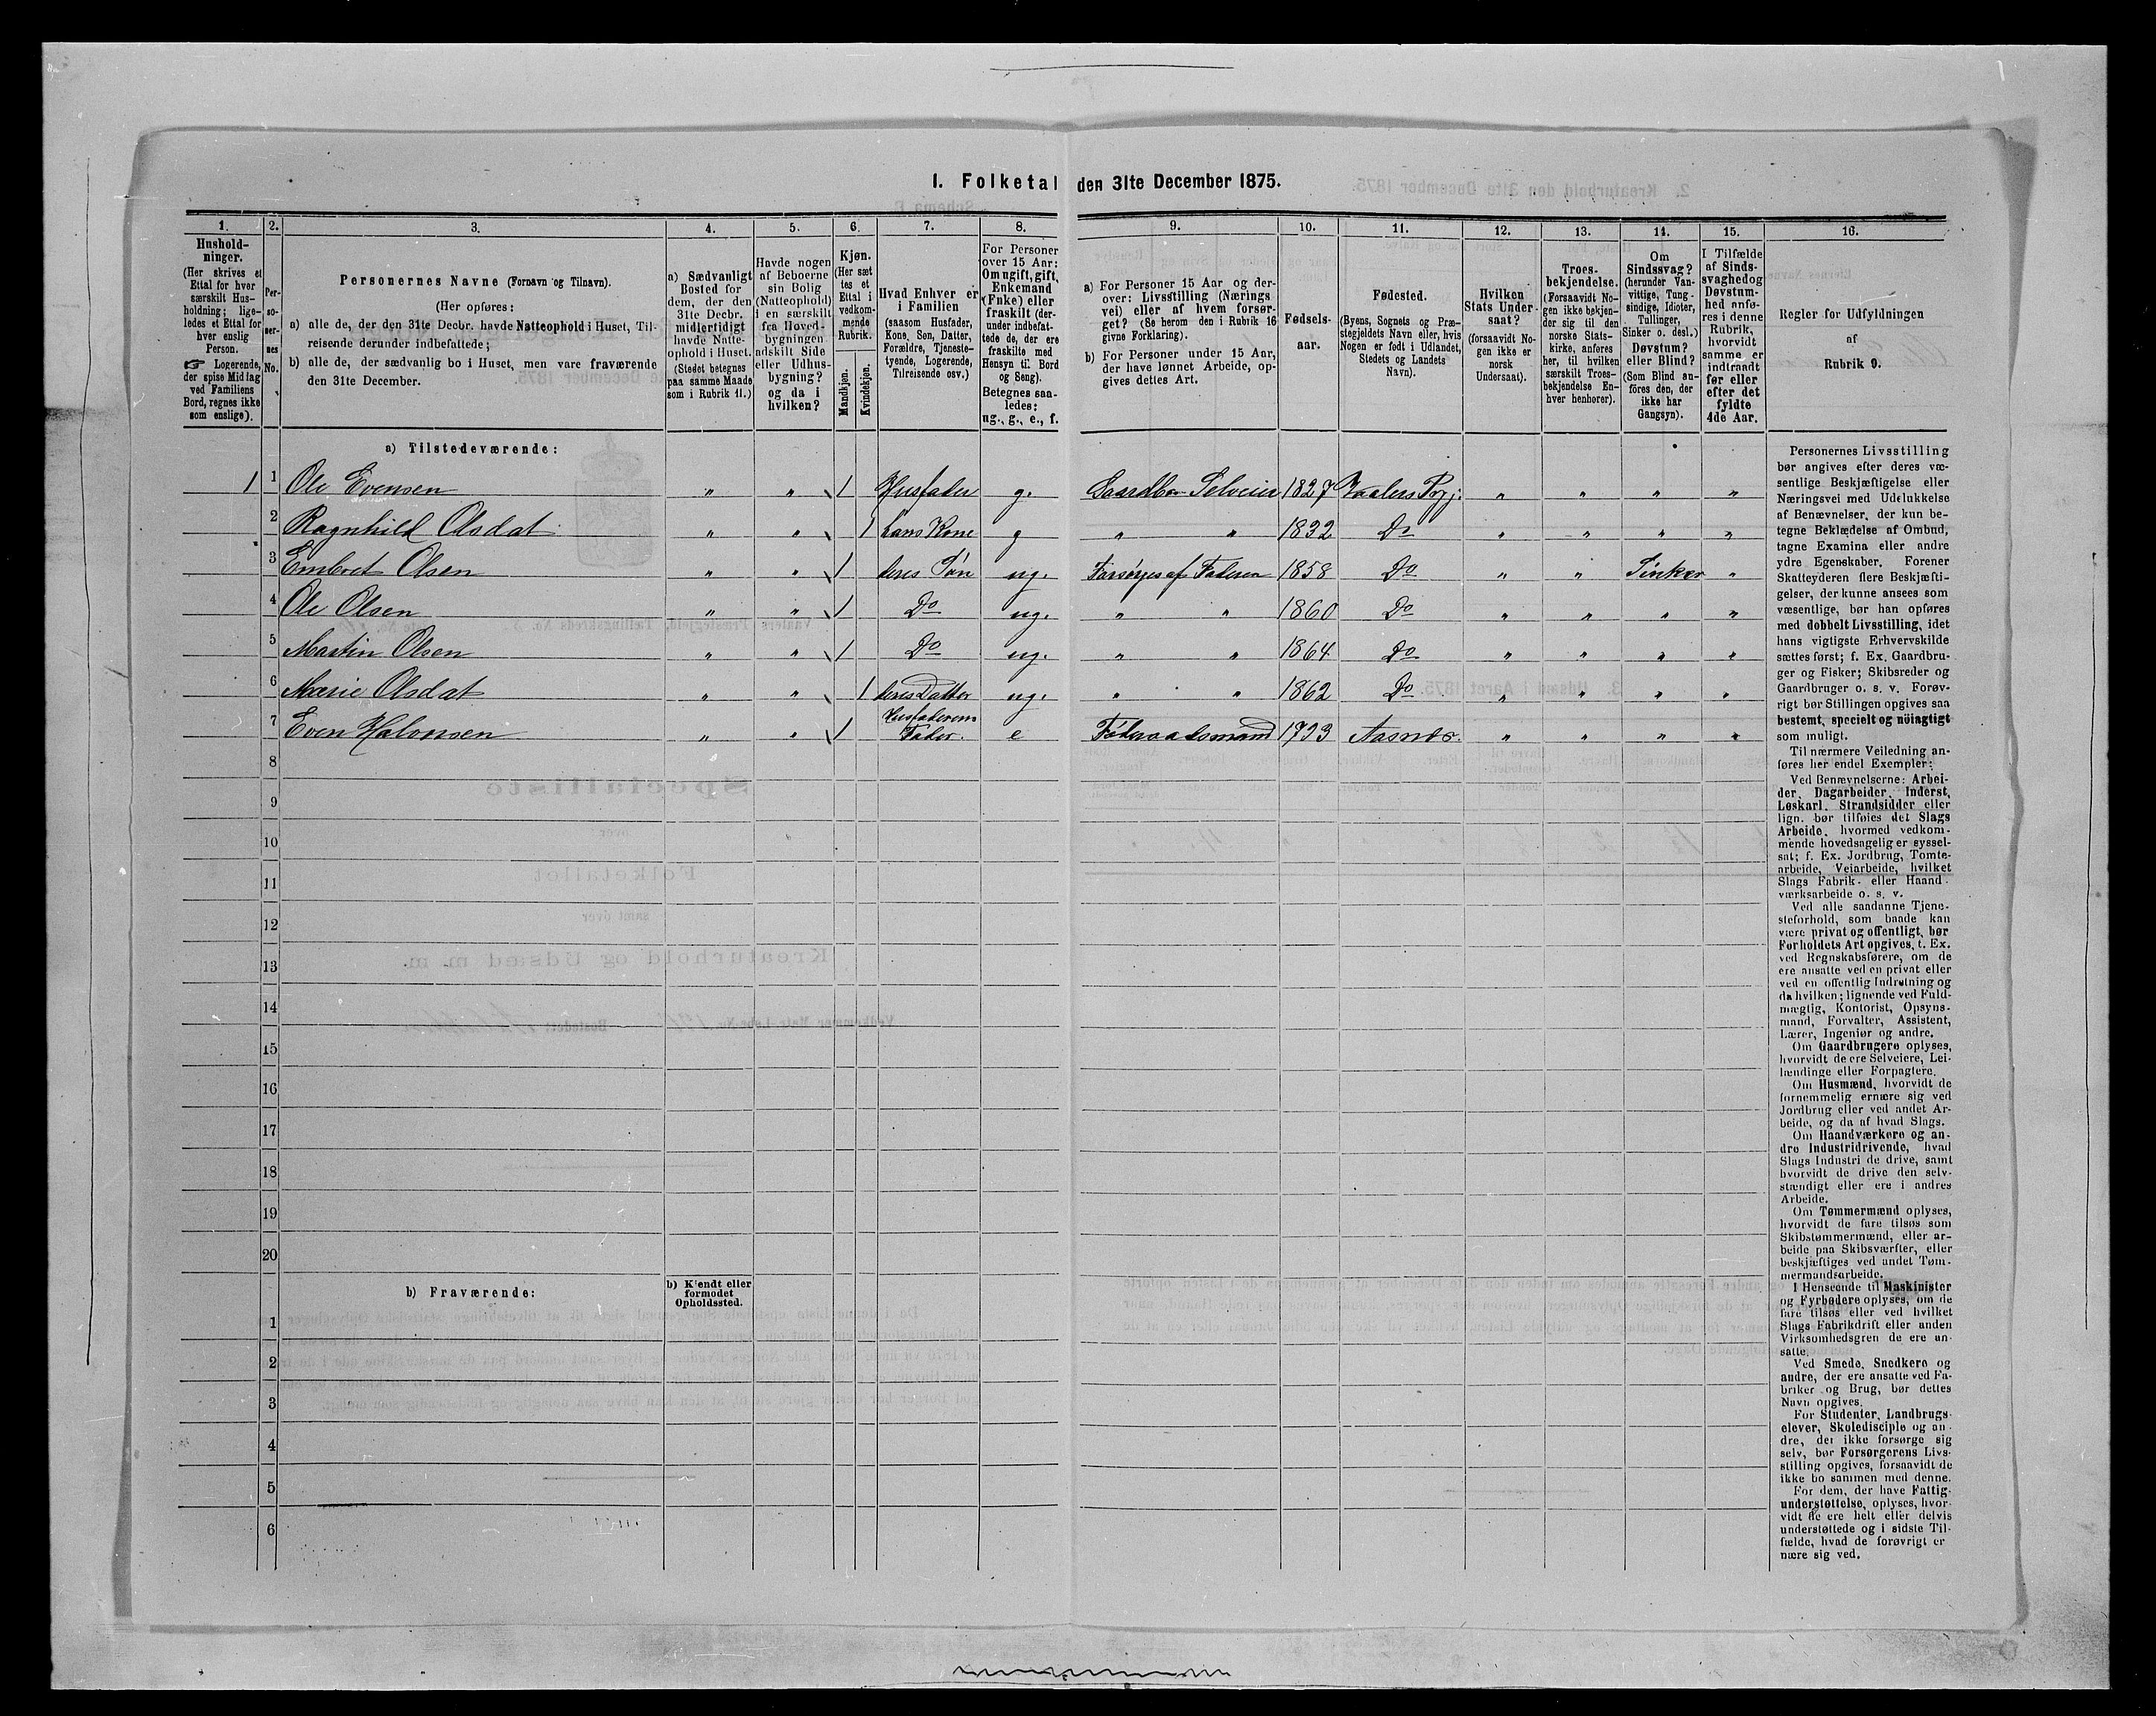 I. Folketal den 31te December 1875.
1.
Hushold-
ninger.
(Her skrives et
Ettal for hver
særskilt Hus-
holdning; lige-
ledes et Ettal for
hver enslig
Person.
☞ Logerende,
der spise Middag
ved Familiens
Bord, regnes ikke
som enslige).
2.
Per-
so-
ner-
nes
No.
3.
Personernes Navne (Fornavn og Tilnavn).
(Her opføres:
a) alle de, der den 31te Decbr. havde Natteophold i Huset, Til-
reisende derunder indbefattede;
b) alle de, der sædvanlig bo i Huset, men vare fraværende
den 31te December.
4.
a) Sædvanligt
Bosted for
dem, der den
31te Decbr.
midlertidigt
havde Natte-
ophold i Huset.
(Stedet betegnes
paa samme Maade
som i Rubrik 11.)
5.
Havde nogen
af Beboerne
sin Bolig
(Natteophold)
i en særskilt
fra Hoved-
bygningen
adskilt Side
eller Udhus-
bygning?
og da i
hvilken?
6.
Kjøn.
(Her sæt
tes et
Ettal i
vedkom-
mende
Rubrik.
Mandkjøn.
Kvindekjøn.
7.
Hvad Enhver er
i Familien
(saasom Husfader,
Kone, Søn, Datter,
Forældre, Tjeneste-
tyende, Logerende,
Tilreisende osv.)
8.
For Personer
over 15 Aar:
Om ugift, gift,
Enkemand
(Enke) eller
fraskilt (der-
under indbefat-
tede de, der ere
fraskilte med
Hensyn til Bord
og Seng).
Betegnes saa-
ledes:
ug., g., e., f.
9.
a) For Personer 15 Aar og der-
over: Livsstilling (Nærings
vei) eller af hvem forsør-
get? (Se herom den i Rubrik 16
givne Forklaring).
b) For Personer under 15 Aar,
der have lønnet Arbeide, op-
gives dettes Art.
10.
Fødsels-
aar.
11.
Fødested.
(Byens, Sognets og Præ-
stegjeldets Navn eller, hvis
Nogen er født i Udlandet,
Stedets og Landets
Navn).
12.
Hvilken
Stats Under-
saat?
(forsaavidt No-
gen ikke er
norsk
Undersaat).
13.
Troes-
bekjendelse.
(Forsaavidt No-
gen ikke bekjen-
der sig til den
norske Stats-
kirke, anføres
her, til hvilken
særskilt Troes-
bekjendelse En-
hver henhører).
14.
Om
Sindssvag?
(herunder Van-
vittige, Tung-
sindige, Idioter,
Tullinger,
Sinker o. desl.)
Døvstum?
eller Blind?
(Som Blind an-
føres den, der
ikke har
Gangsyn).
15.
I Tilfælde
af Sinds-
svaghed og
Døvstum-
hed anfø-
res i denne
Rubrik,
hvorvidt
samme er
indtraadt
før eller
efter det
fyldte
4de Aar.
16.
Regler for Udfyldningen
af
Rubrik 9.
a) Tilstedeværende:
1 1 Ole Evensen " " 1 Husfader g. Gaardbr. Selveier 1827 Vaalers Prgj. " " " "
2 Ragnhild Olsdat " " 1 hans Kone g " " 1832 Do " " " "
3 Embret Olsen " " 1 deres Søn ug. Forsørges af Faderen 1858 Do " " Sinker "
4 Ole Olsen " " 1 Do ug. " " 1860 Do " " " "
5 Martin Olsen " " 1 Do ug. " " 1864 Do " " " "
6 Marie Olsdat " " 1 deres Datter ug. " " 1862 Do " " " "
7 Even Halvorsen " " 1 Husfaderens Fader. e Føderaadsmand 1793 Aasnæs. " " " "
8
9
10
11
12
13
14
15
16
17
18
19
20
b) Fraværende:
b) Kjendt eller
formodet
Opholdssted.
1
2
3
4
5
6
Personernes Livsstilling
bør angives efter deres væ-
sentlige Beskjæftigelse eller
Næringsvei med Udelukkelse
af Benævnelser, der kun be-
tegne Beklædelse af Ombud,
tagne Examina eller andre
ydre Egenskaber. Forener
Skatteyderen flere Beskjæfti-
gelser, der kunne ansees som
væsentlige, bør han opføres
med dobbelt Livsstilling, idet
hans vigtigste Erhvervskilde
sættes først; f. Ex. Gaardbru-
ger og Fisker; Skibsreder og
Gaardbruger o. s. v. Forøv-
rigt bør Stillingen opgives saa
bestemt, specielt og nöiagtigt
som muligt.
Til nærmere Veiledning an-
føres her endel Exempler:
Ved Benævnelserne: Arbei-
der, Dagarbeider, Inderst,
Løskarl, Strandsidder eller
lign. bør tilføies det Slags
Arbeide, hvormed vedkom-
mende hovedsagelig er syssel-
sat; f. Ex. Jordbrug, Tomte-
arbeide, Veiarbeide, hvilket
Slags Fabrik- eller Haand-
værksarbeide o. s. v.
Ved alle saadanne Tjene-
steforhold, som baade kan
være privat og offentligt, bør
Forholdets Art opgives, t. Ex.
ved Regnskabsførere, om de
ere ansatte ved en privat eller
ved en offentlig Indretning og
da hvilken; lignende ved Fuld-
mægtig, Kontorist, Opsyns-
mand, Forvalter, Assistent,
Lærer, Ingeniør og andre.
Om Gaardbrugere oplyses,
hvorvidt de ere Selveiere, Lei-
lændinge eller Forpagtere.
Om Husmænd, hvorvidt de
fornemmelig ernære sig ved
Jordbrug eller ved andet Ar-
beide, og da af hvad Slags.
Om Haandværkere og an-
dre Industridrivende, hvad
Slags Industri de drive, samt
hvorvidt de drive den selv-
stændigt eller ere i andres
Arbeide.
Om Tømmermænd oplyses,
hvorvidt de fare tilsøs som
Skibstømmermænd, eller ar-
beide paa Skibsværfter, eller
beskjæftiges ved andet Tøm-
mermandsarbeide.
I Henseende til Maskinister
og Fyrbødere oplyses, om de
fare tilsøs eller ved hvilket
Slags Fabrikdrift eller anden
Virksomhedsgren de ere an-
satte.
Ved Smede, Snedkere og
andre, der ere ansatte ved Fa-
briker og Brug, bør dettes
Navn opgives.
For Studenter, Landbrugs-
elever, Skoledisciple og an-
dre, der ikke forsørge sig
selv, bør Forsørgerens Livs-
stilling opgives, forsaavidt de
ikke bo sammen med denne.
For dem, der have Fattig-
understøttelse, oplyses, hvor-
vidt de ere helt eller delvis
understøttede og i sidste Til-
fælde, hvad de forøvrigt er
nære sig ved.